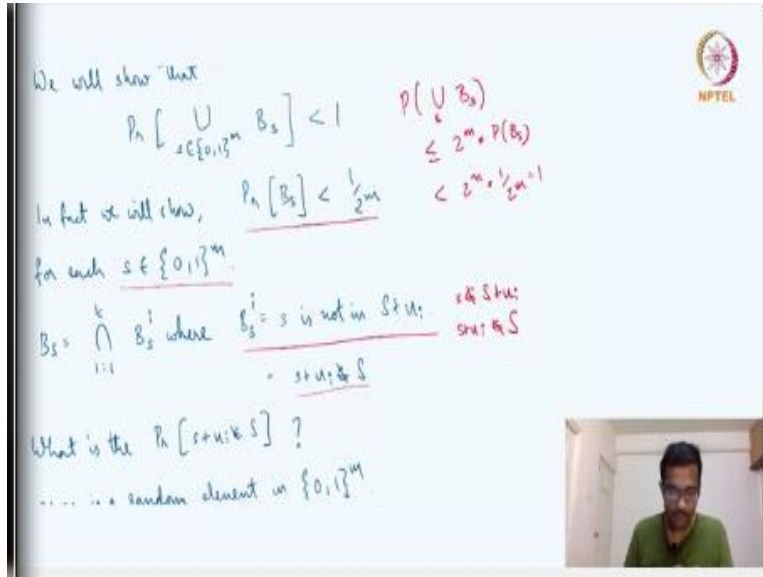 We will show that
Pr [ ⋃ B_s ] < 1
s∈{0,1}^m
P( ⋃ B_s )
s
≤ 2^m · P(B_s)
< 2^m · 1/2^m = 1
In fact we will show, Pr [B_s] < 1/2^m
for each s ∈ {0,1}^m.
B_s = ⋂_{i=1}^k B_s^i where B_s^i = s is not in S+u_i
s ∉ S+u_i
s+u_i ∉ S
= s+u_i ∉ S
What is the Pr [s+u_i ∉ S] ?
random element in {0,1}^m.
NPTEL